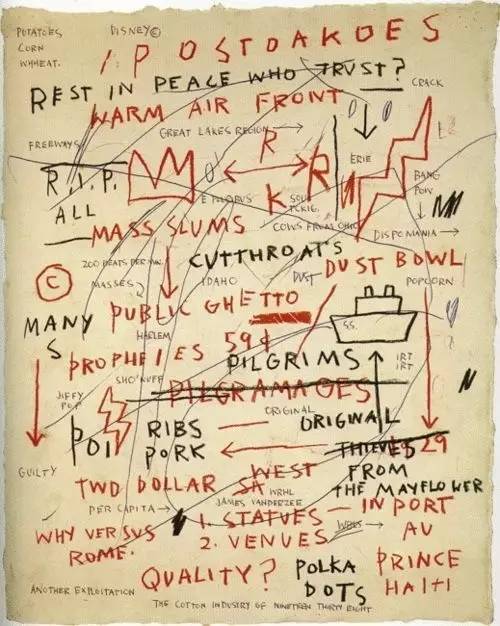 POTATOES DISNEY©
CORN
WHHEAT.
POSTOAKOES
REST IN PEACE WHO TRVST?
CRACK
WARM AIR FRONT
GREAT LAKES REGION
FREEWAYS
R
ERIE
R.I.P.
R
BANG
POW
ALL
K
MASS SLUMS
COWS FROM OHIO
DISPOMANIA
CUTTHROAT'S
200 BEATS PER MIN.
DUST BOWL
IDAHO
DUST
©
MASSES
POPCORN
PUBLIC GHETTO
MANY
S
HARLEM
59¢
SS.
PROPHEIES
PILGRIMS
IRT
IRT
SHO'NUFF
PILGRAMAGES
JIFFY
POP
ORIGINAL
ORIGINAL
POI
RIBS
PORK
THIEVES 29
GUILTY
WEST
FROM
TWO DOLLAR SA
THE MAYFLOWER
WRHL
PER CAPITA
JAMES VANDERZEE
1. STATVES
IN PORT
AU
WHY VERSVS
ROME.
2. VENUES
PRINCE
HAITI
QUALITY?
POLKA
DOTS
ANOTHER EXPLOITATION
THE COTTON INDUSTRY OF NINETEEN THIRTY EIGHT